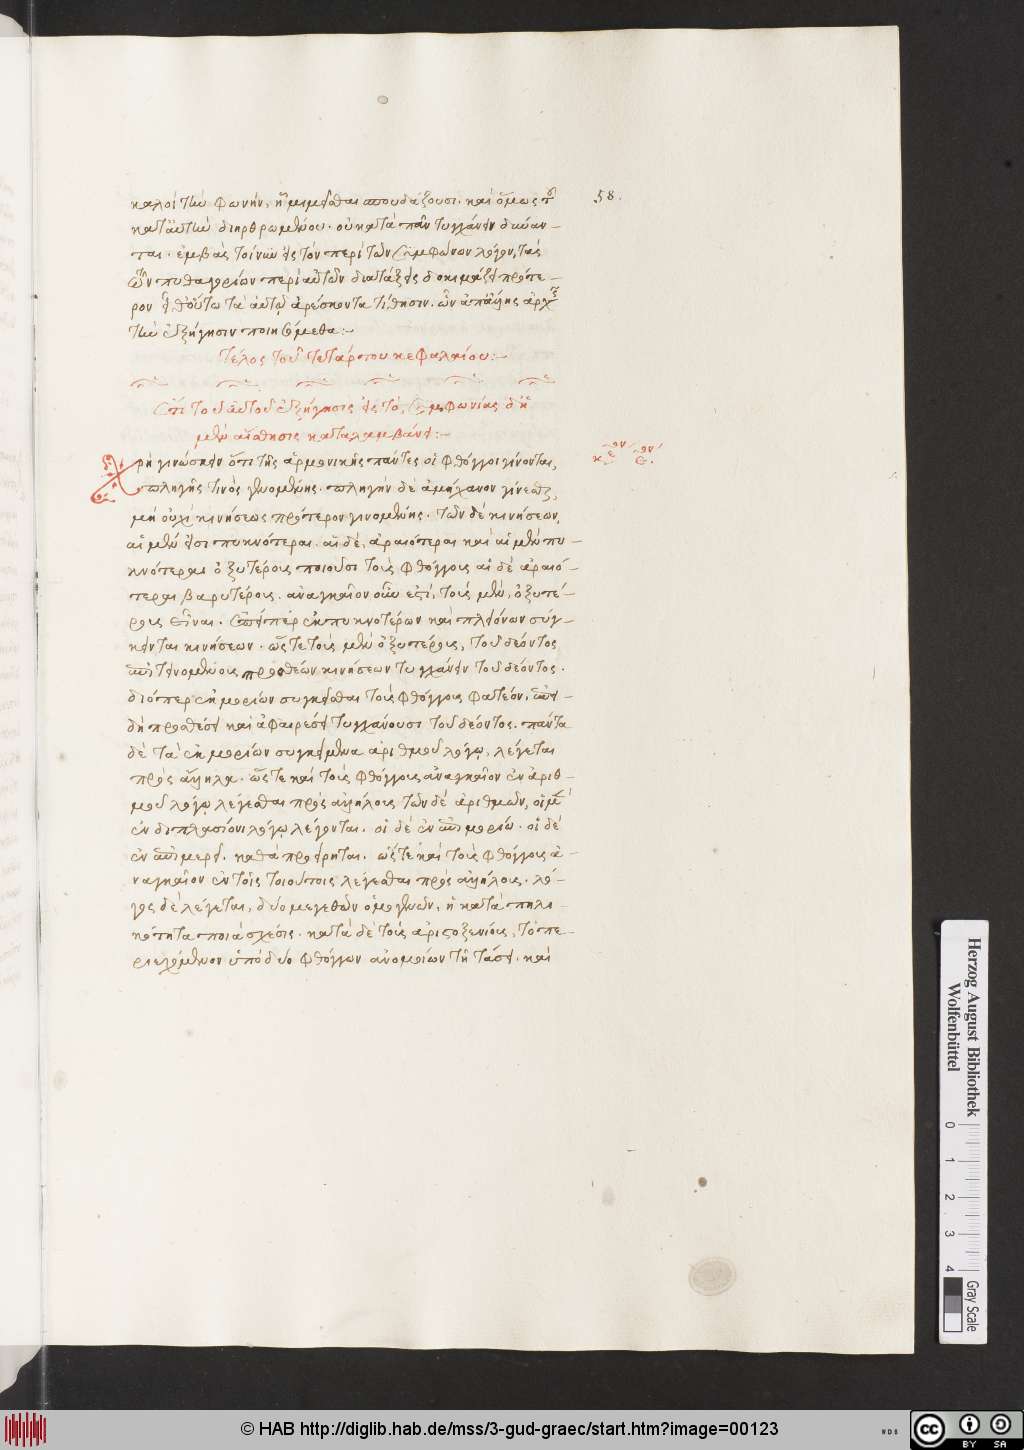 καλοὶ τὴν φωνήν, ἣ μιμεῖσθαι σπουδάζουσι. καὶ ὅμως
κατ' αὐτὴν διηρθρωμένου. οὐ κατὰ πᾶν τυγχάνειν δύναν-
ται. ἐμβὰς τοίνυν εἰς τὸν περὶ τῶν συμφώνων λόγον, τὰς
τῶν πυθαγορίων περὶ αὐτῶν διατάξεις δοκιμάζει πρότε-
ρον εἶθ' οὕτω τὰ αὐτῷ ἀρέσκοντα τίθησιν. ὧν ἀπ' ἄλλης ἀρχῆς
τὴν ἐξήγησιν ποιησόμεθα:-
τέλος τοῦ τετάρτου κεφαλαίου:-
ἐπὶ τοῦ ἐξήγησις εἰς τὸ, συμφωνίας δ' ἡ
μὲν αἴσθησις καταλαμβάνει:-
58.
Χρὴ γινώσκειν ὅτι τῆς ἁρμονικῆς πάντες οἱ φθόγγοι γίνονται,
πληγῆς τινὸς γενομένης. πληγὴν δὲ ἀμήχανον γίνεσθαι,
μὴ οὐχὶ κινήσεως πρότερον γινομένης. τῶν δὲ κινήσεων,
αἱ μὲν εἰσι πυκνότεραι. αἱ δὲ, ἀραιότεραι καὶ αἱ μὲν πυ-
κνότεραι ὀξυτέρους ποιοῦσι τοὺς φθόγγους αἱ δὲ ἀραιό-
τεραι βαρυτέρους. ἀναγκαῖον οὖν ἐστί, τοὺς μὲν, ὀξυτέ-
ρους εἶναι. ἐπείπερ ἐκ πυκνοτέρων καὶ πλειόνων σύγ-
κεινται κινήσεων. ὥστε τοὺς μὲν ὀξυτέρους, τοῦ δέοντος
προσθέσει κινήσεων τυγχάνειν τοῦ δέοντος.
διόπερ ἐκ μορίων συγκεῖσθαι τοὺς φθόγγους φατέον, ἐπει-
δὴ προσθέσει καὶ ἀφαιρέσει τυγχάνουσι τοῦ δέοντος. πάντα
δὲ τὰ ἐκ μορίων συγκείμενα ἀριθμοῦ λόγῳ, λέγεται
πρὸς ἄλληλα. ὥστε καὶ τοὺς φθόγγους ἀναγκαῖον ἐν ἀριθ-
μοῦ λόγῳ λέγεσθαι πρὸς ἀλλήλους τῶν δὲ ἀριθμῶν, οἱ μὲν
ἐν διπλασίονι λόγῳ λέγονται. οἱ δὲ ἐν ἐπιμορίῳ. οἱ δὲ
ἐν ἐπιμερεῖ. καθὰ προείρηται. ὥστε καὶ τοὺς φθόγγους ἀ-
ναγκαῖον ἐν τοῖς τοιούτοις λέγεσθαι πρὸς ἀλλήλους. λό-
γος δὲ λέγεται, δύο μεγεθῶν ὁμογενῶν, ἡ κατὰ πηλι-
κότητα ποιὰ σχέσις. κατὰ δὲ τοὺς ἀριστοξενίους, τὸ πε-
ριεχόμενον ὑπὸ δύο φθόγγων ἀνομοίων τῇ τάσει. καὶ
Herzog August Bibliothek
Wolfenbüttel
0 1 2 3 4
Gray Scale
© HAB http://diglib.hab.de/mss/3-gud-graec/start.htm?image=00123
WDB
cc BY SA